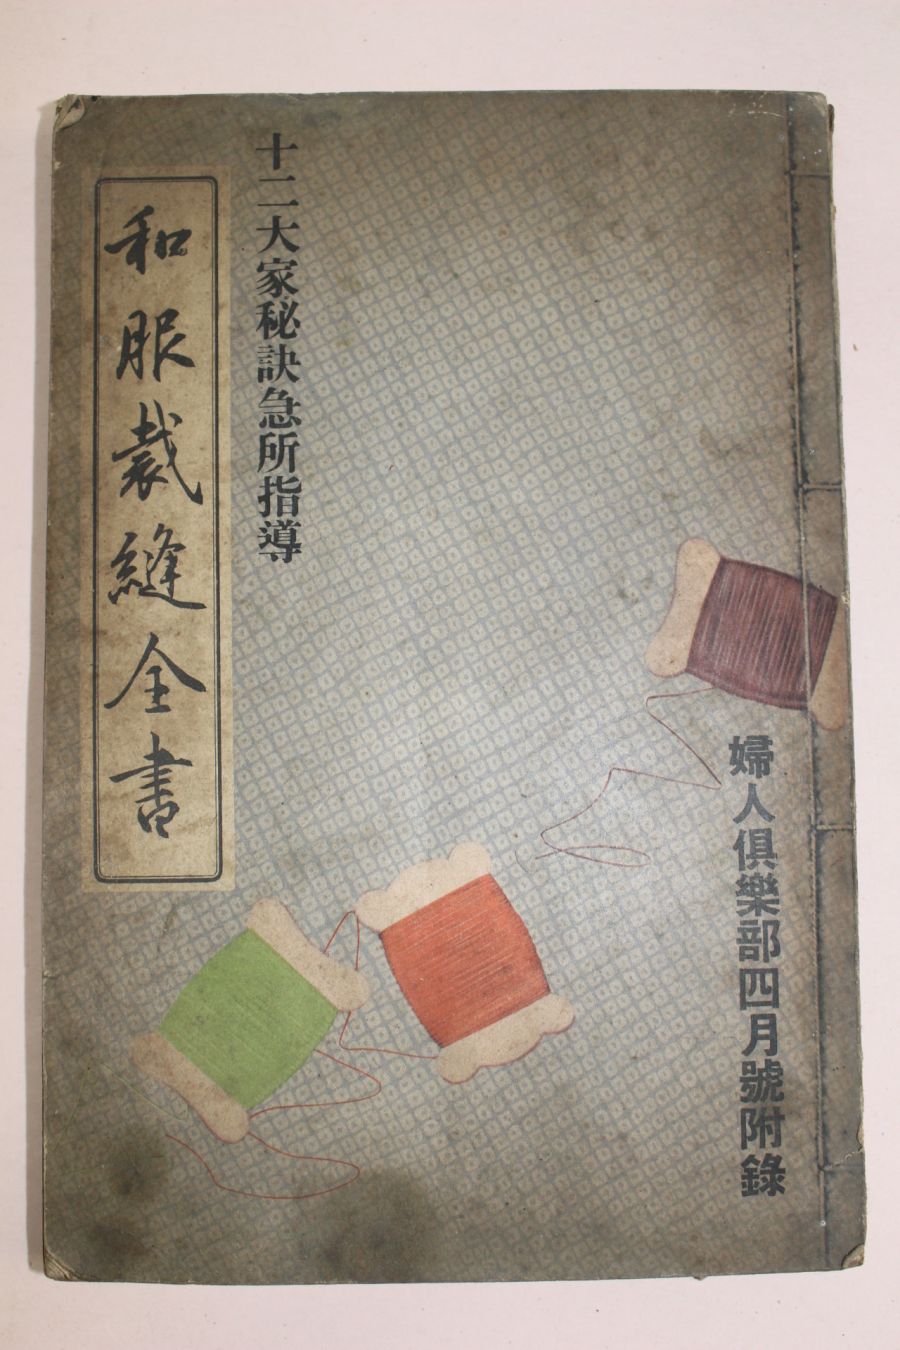 婦人倶樂部四月號附錄
十二大家秘訣急所指導
和服裁縫全書